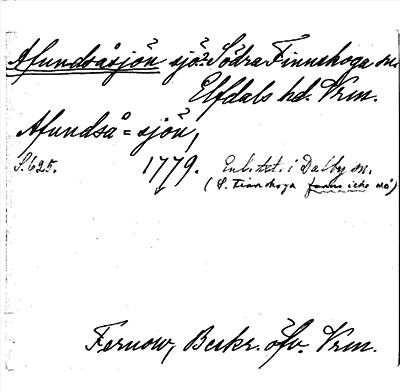 Afundsåsjön sjö? Södra Finnskoga sn.
Elfdals hd. Vrm.
Afundså=sjön,
S. 625. 1779. Enl. tkt. i Dalby sn.
(S. Finnskoga fanns icke då)
Fernow, Beskr. öfv. Vrm.